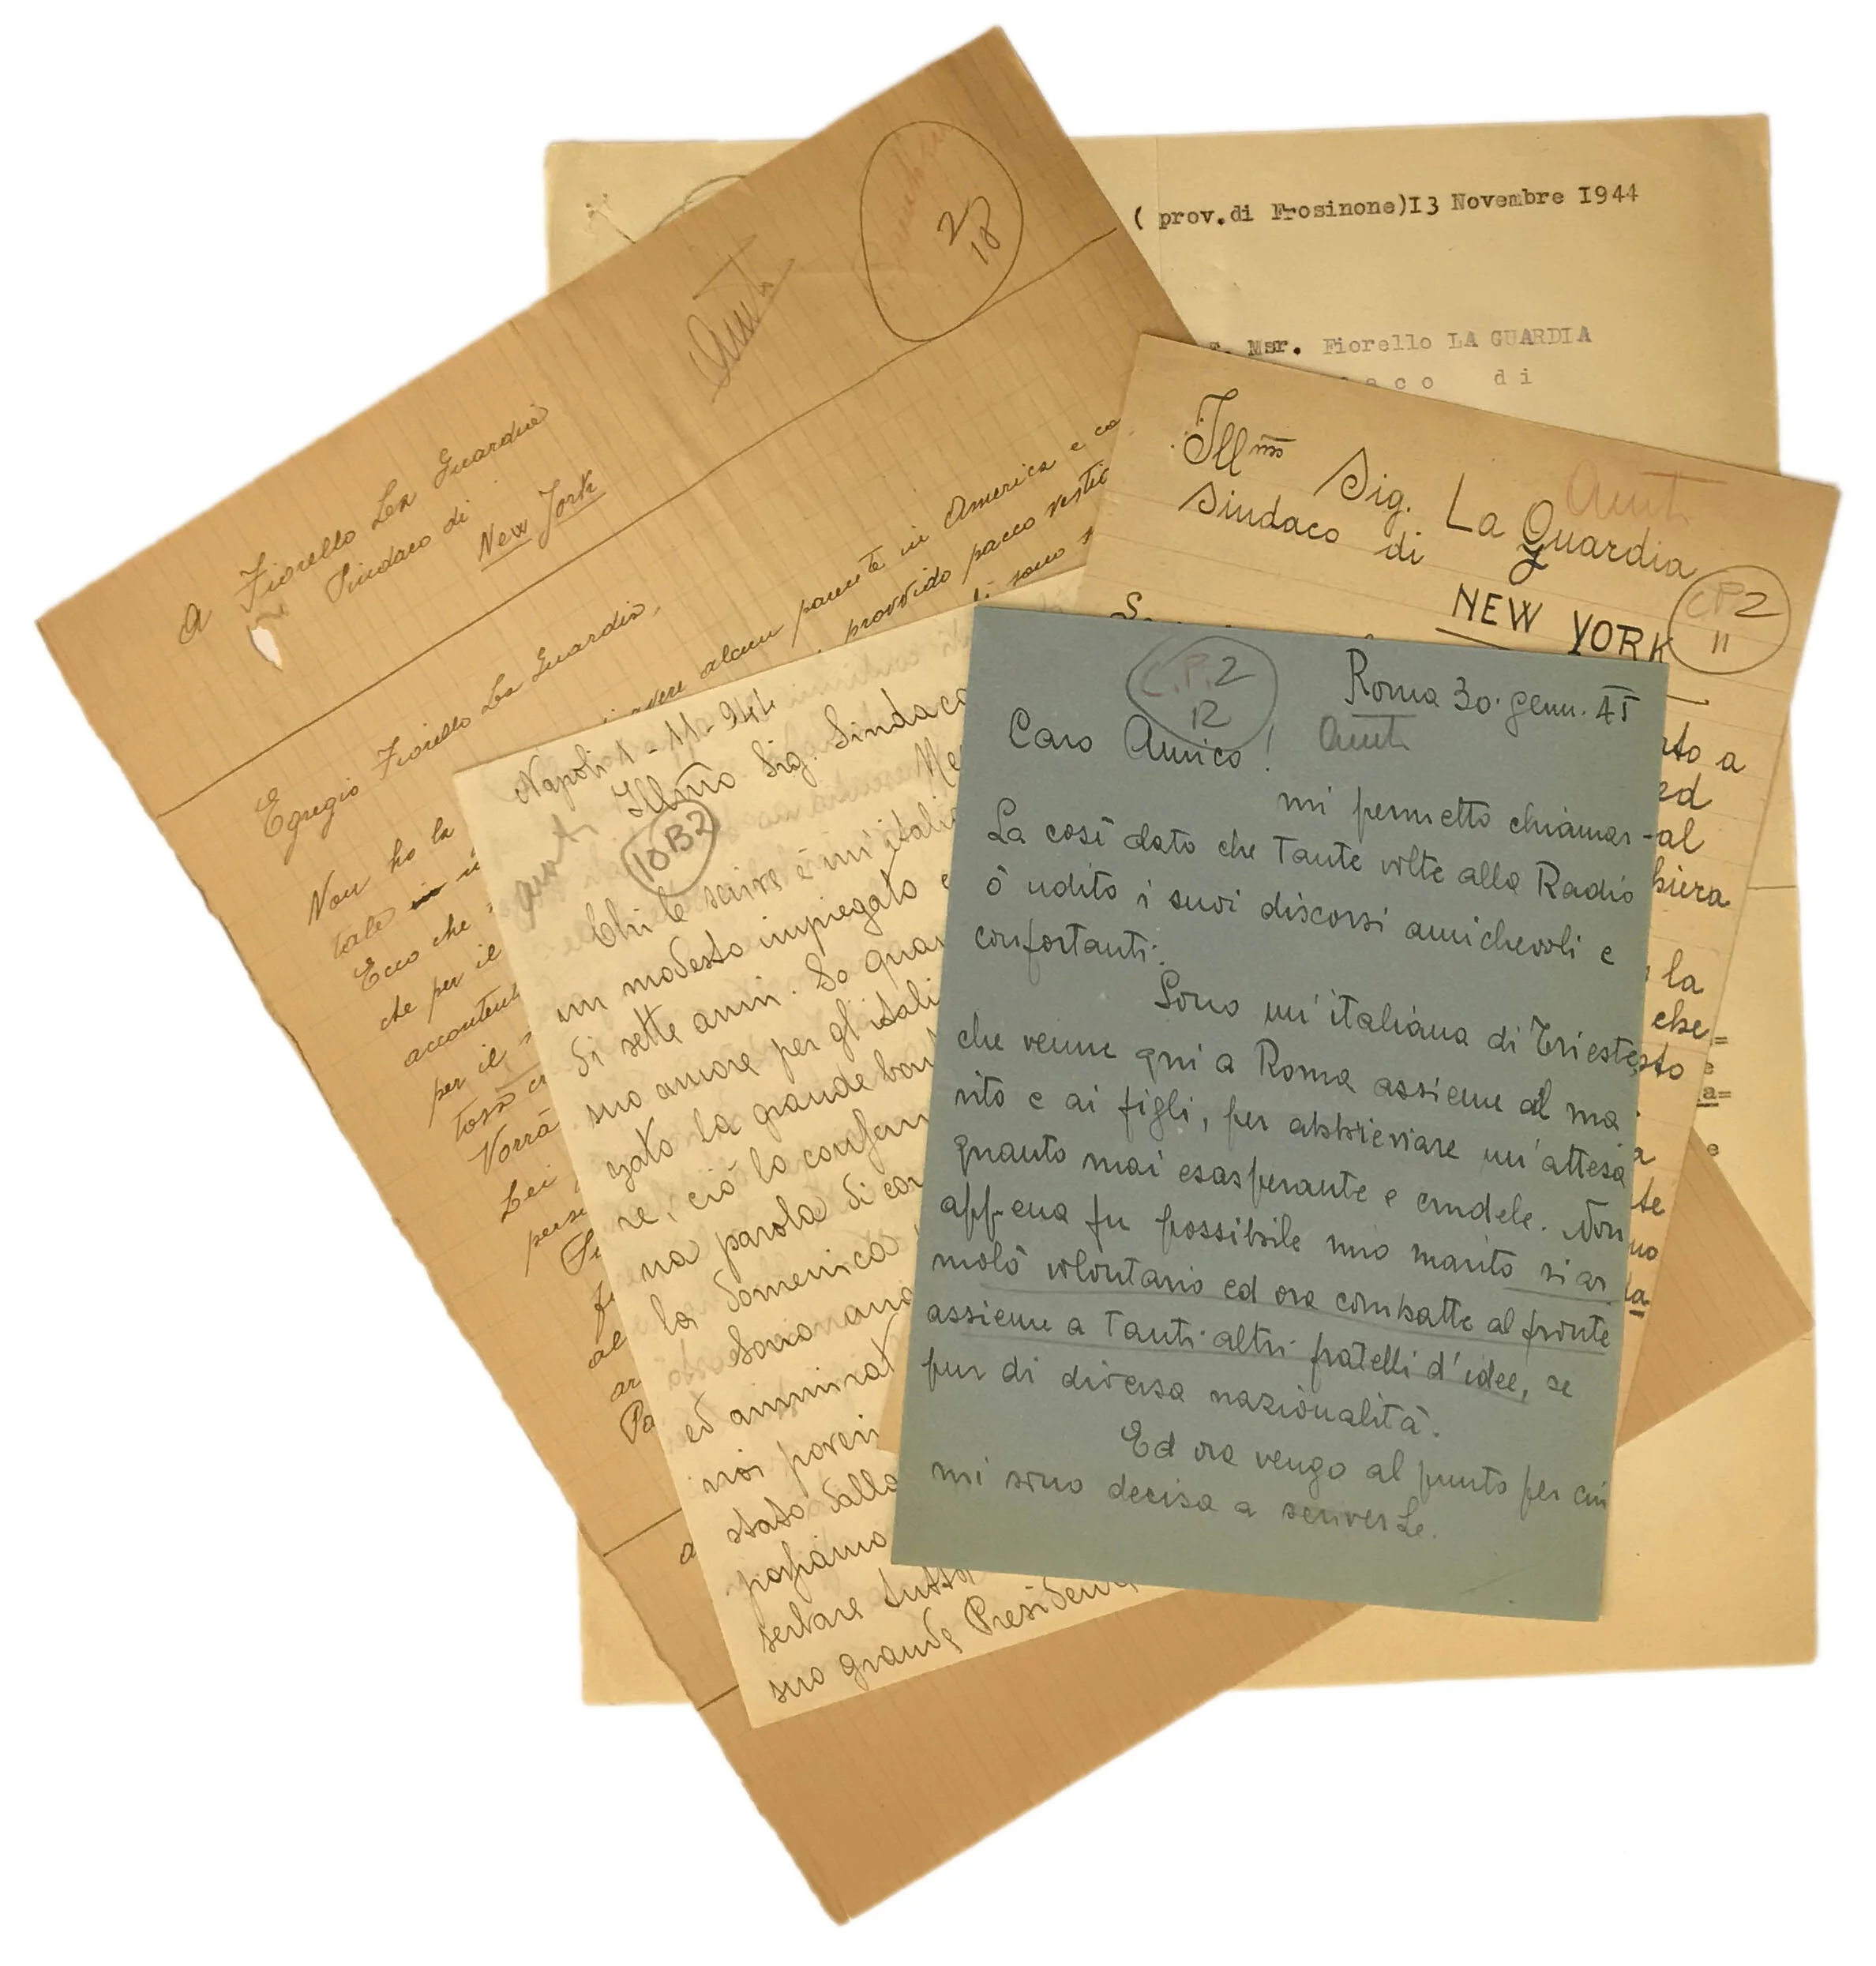 ( prov.di Frosinone)I3 Novembre I944
Msr. Fiorello LA GUARDIA
aco di
2
18
Aunt
A Fiorello La Guardia
Sindaco di
New York
Egregio Fiorello La Guardia,
avere alcun parente in America e co
provvido pacco vestia
sono
Non ho la
tale
Ecco che
che per il
accontent
per il
Vorrà
Lei
perso
Ill.mo Sig. La Guardia
Aunt
Sindaco di
NEW YORK
CP2
11
rto a
ed
al
hiera
la
che=
sto
te
no
la
Napoli 1-11-944
Ill.mo Sig. Sindaco
Ne
aunt
10B2
Chi le scrive è un'itali
un modesto impiegato e
di sette anni. So quan
suo amore per gl'itali
zato la grande bon
re, ciò lo conferm
na parola di con
la domenica
ed ammirat
noi poveri
stato dalla
possiamo
serbare tutta
suo grande Presidente
C.P.2
12
Roma 30. genn. 45
Caro Amico!
Aunt
mi permetto chiamar-
La così dato che tante volte alla Radio
ò udito i suoi discorsi amichevoli e
confortanti.
Sono un'italiana di Trieste,
che venne qui a Roma assieme al ma
rito e ai figli, per abbreviare un'attesa
quanto mai esasperante e crudele. Non
appena fu possibile mio marito si ar
molò volontario ed ora combatte al fronte
assieme a tanti altri fratelli d'idee, se
pur di diversa nazionalità.
Ed ora vengo al punto per cui
mi sono decisa a scriverLe.